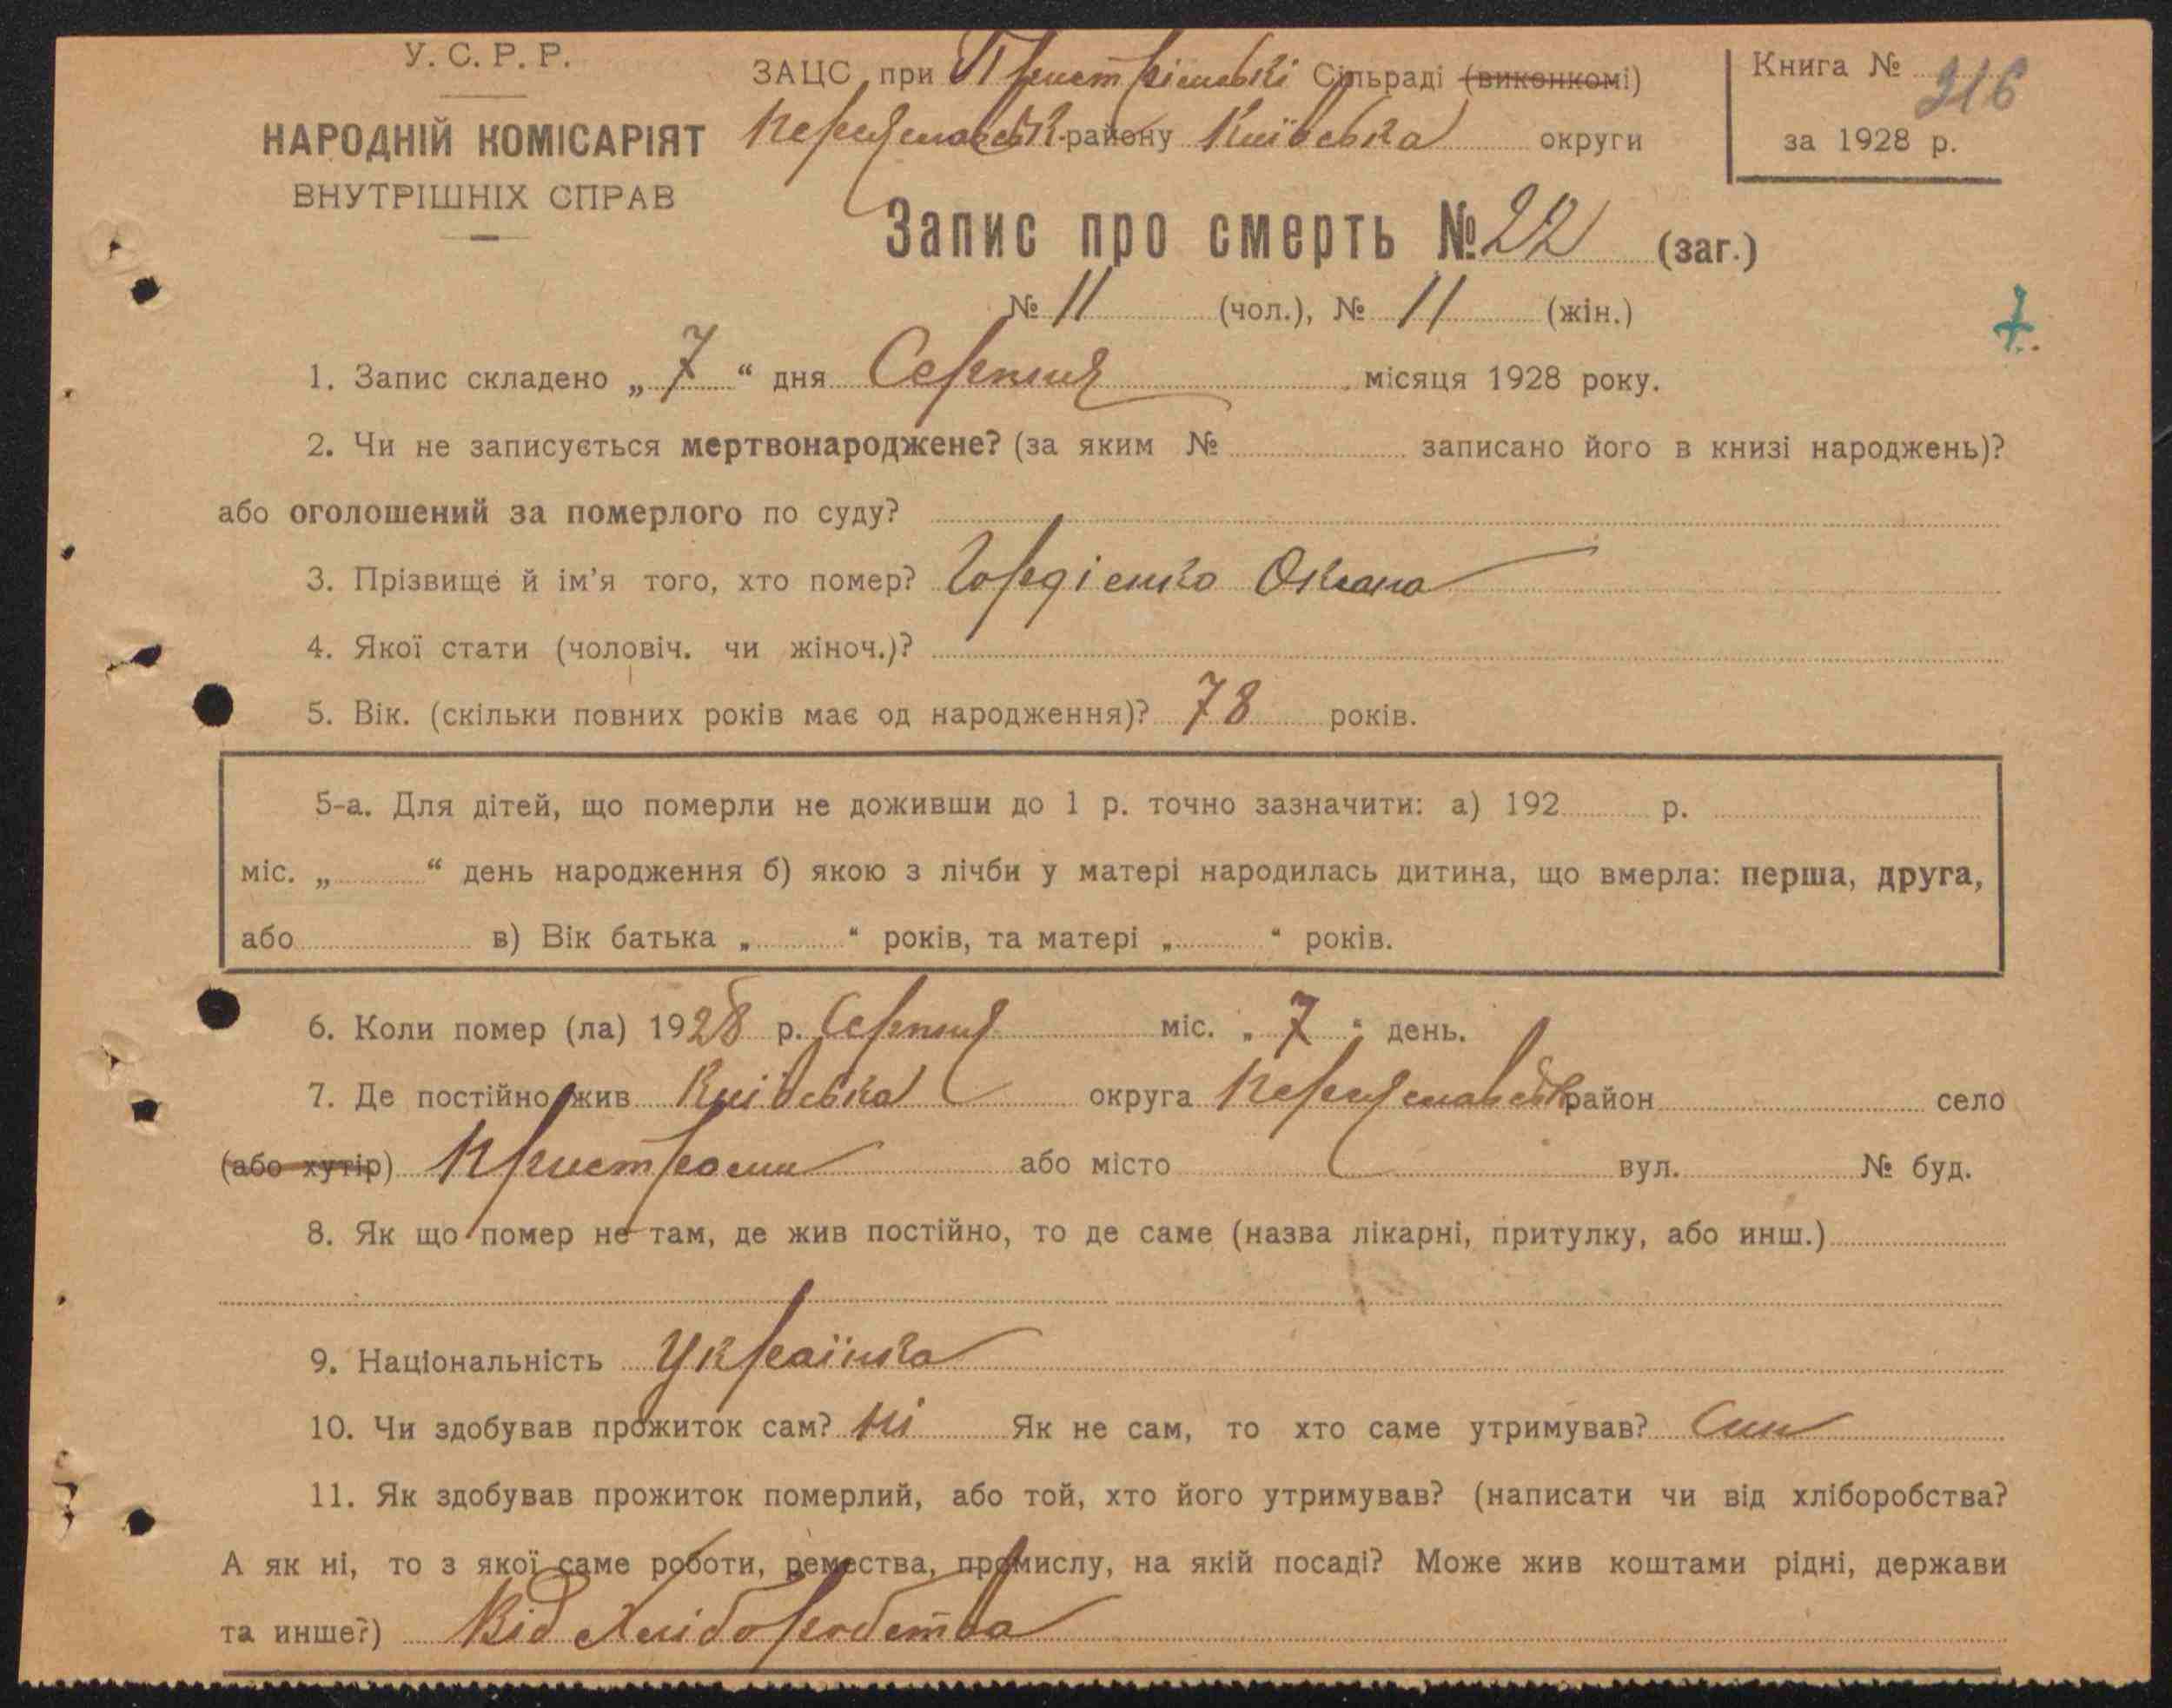 У.С.Р.Р.
НАРОДНІЙ КОМІСАРІЯТ
ВНУТРІШНІХ СПРАВ
ЗАЦС при Пристрімській Сільраді (виконкомі)
Переяславськ. району Київська округи
Книга № 216
за 1928 р.
Запис про смерть № 22 (заг.)
№ 11 (чол.), № 11 (жін.)
7
1. Запис складено „ 7 “ дня Серпня місяця 1928 року.
2. Чи не записується мертвонароджене? (за яким № записано його в книзі народжень)?
або оголошений за померлого по суду?
3. Прізвище й ім’я того, хто помер? Гордієнко Оксана
4. Якої стати (чоловіч. чи жіноч.)?
5. Вік. (скільки повних років має од народження)? 78 років.
5-а. Для дітей, що померли не доживши до 1 р. точно зазначити: а) 192 р.
міс. „ “ день народження б) якою з лічби у матері народилась дитина, що вмерла: перша, друга,
або в) Вік батька „ “ років, та матері „ “ років.
6. Коли помер (ла) 1928 р. Серпня міс. „ 7 “ день.
7. Де постійно жив Київська округа Переяславськ район село
(або хутір) Пристроми або місто вул. № буд.
8. Як що помер не там, де жив постійно, то де саме (назва лікарні, притулку, або инш.)
9. Національність Українка
10. Чи здобував прожиток сам? Ні Як не сам, то хто саме утримував? Син
11. Як здобував прожиток померлий, або той, хто його утримував? (написати чи від хліборобства?
А як ні, то з якої саме роботи, ремества, промислу, на якій посаді? Може жив коштами рідні, держави
та инше?) Від Хліборобства